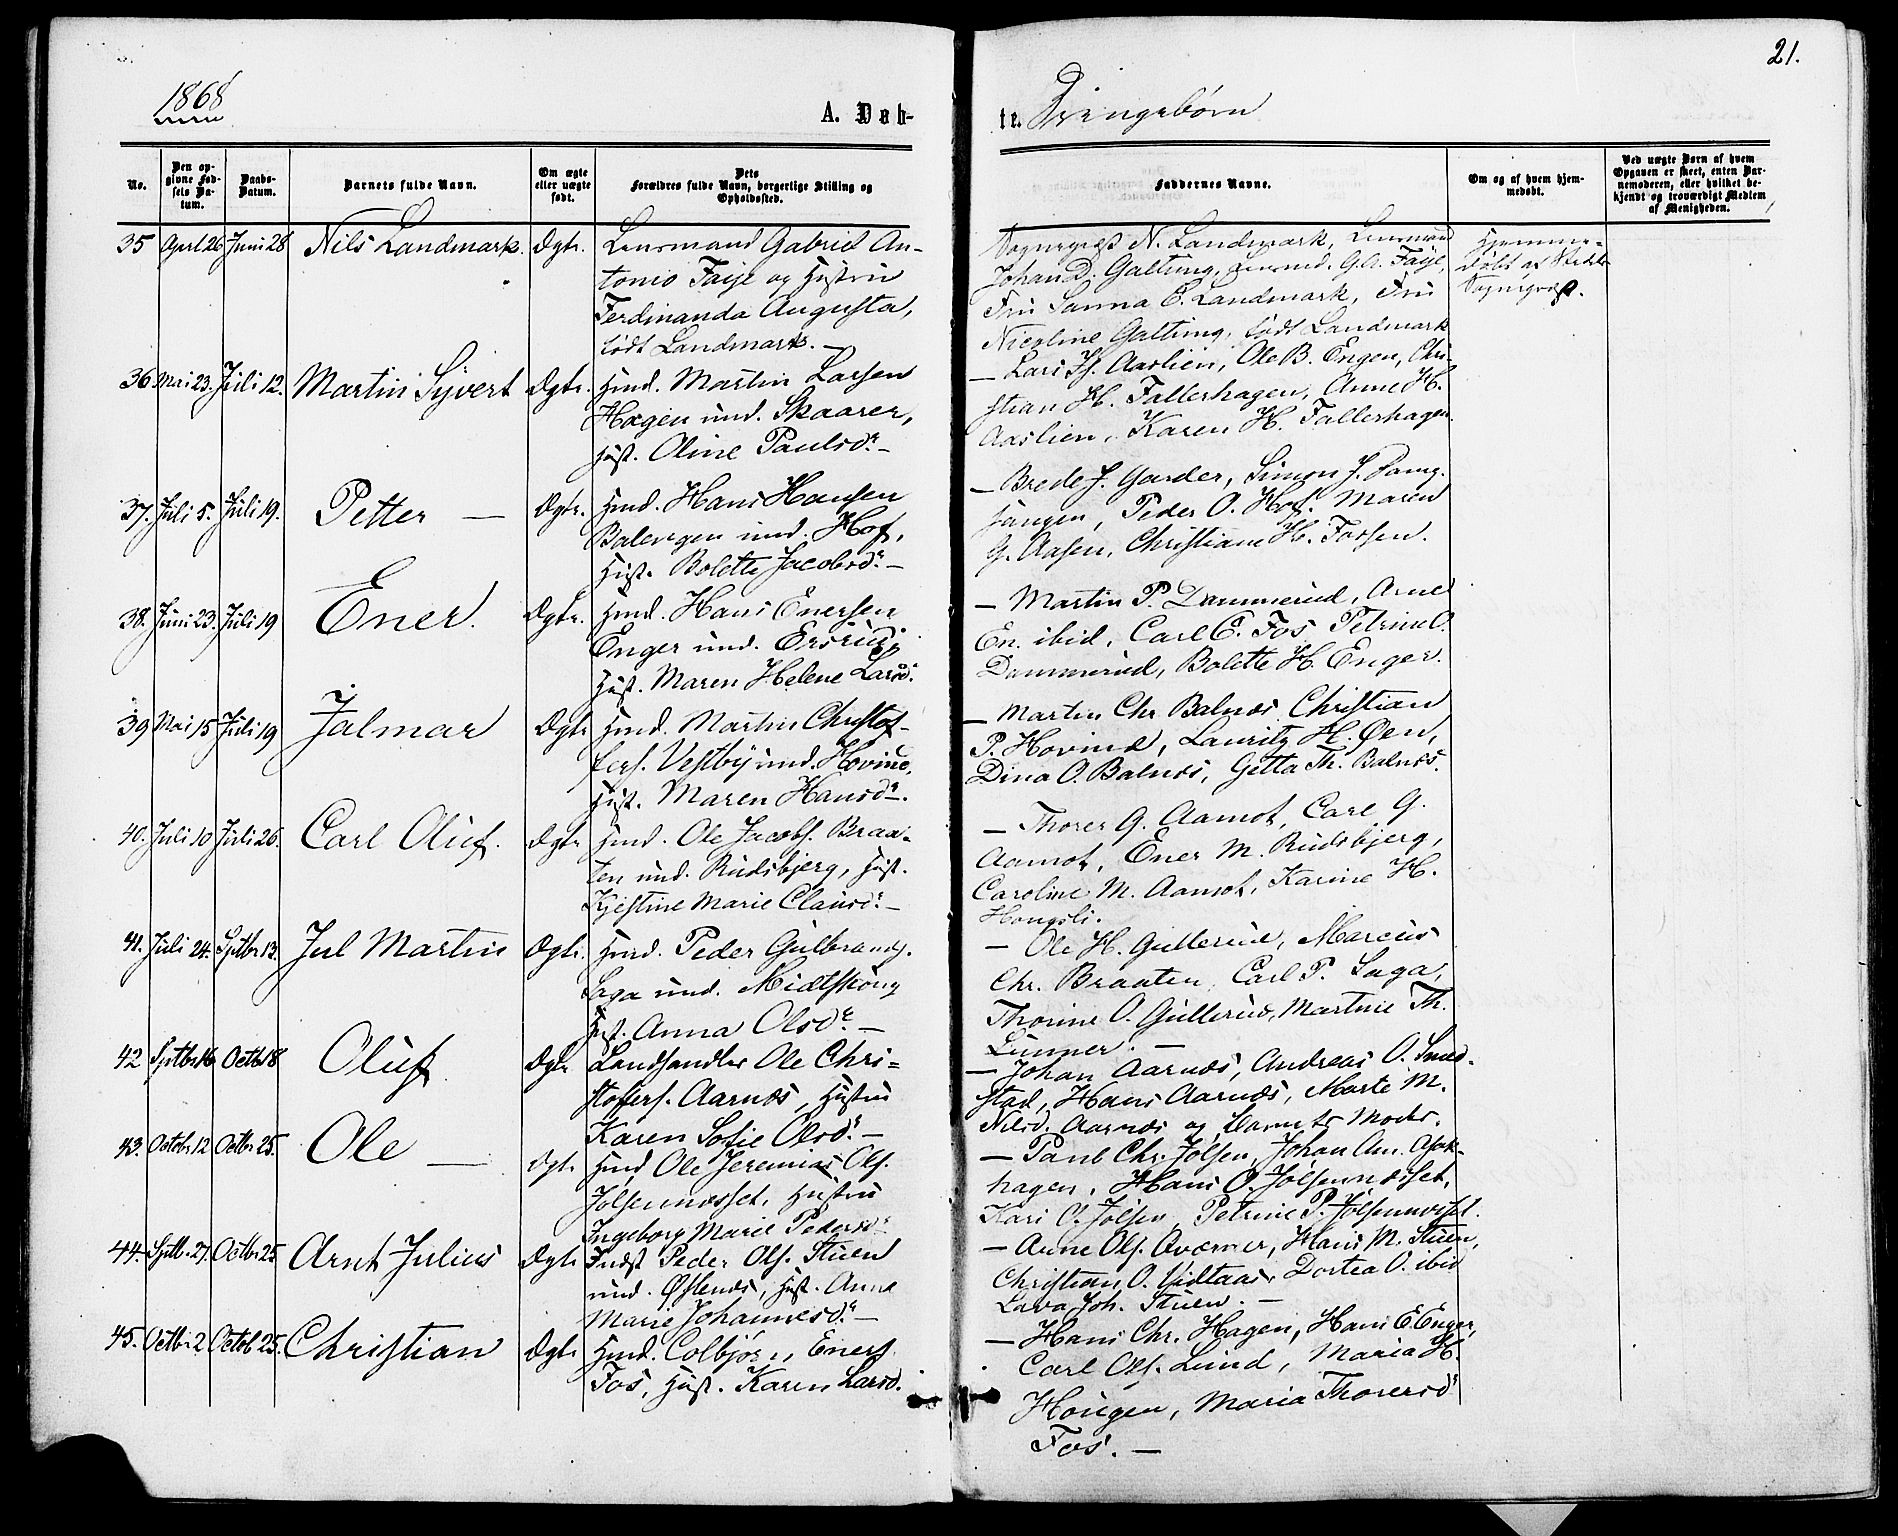 21.
1868
A. Døb-
te. Drengebørn
No.
Den op-
givne Fød-
sels Da-
tum.
Daabs-
Datum.
Barnets fulde Navn.
Om ægte
eller uægte
født.
Dets
Forældres fulde Navn, borgerlige Stilling og
Opholdssted.
Faddernes Navne.
Om og af hvem hjem-
medøbt.
Ved uægte Børn af hvem
Opgaven er skeet, enten Bar-
nemoderen, eller hvilket be-
kjendt og troværdigt Medlem
af Menigheden.
35 April 26 Juni 28 Nils Landmark. Ægte. Lensmand Gabriel An-
tonio Faije og Hustru
Ferdinanda Augusta,
født Landmark. —
Sognepræst N. Landmark, Lensmand
Johan D. Galtung, Lensmd. G. A. Faije,
Fru Sanna C. Landmark, Fru
Nicoline Galtung, født Landmark
Hjemme-
døbt af Stedets
Sognepræst.
36. Mai 23. Juli 12. Martin Syvert Ægte. Hmd. Martin Larsen
Hagen und. Skaarer,
Hust. Oline Paulsdr. —
— Lars H. Aaslien, Ole B. Engen, Chri-
stian H. Fallerhagen, Anne H.
Aaslien, Karen H. Fallerhagen.
37. Juli 5. Juli 19. Petter — Ægte. Hmd. Hans Hansen
Balengen und. Hof,
Hust. Bolette Jacobsdr. —
— Brede J. Garder, Simon J.
Peder O. Hof. Maren
G. Aasen, Christiane H. Fossen.
38. Juni 23. Juli 19 Ener. Ægte. Hmd. Hans Enersen
Enger und. Ersrud,
Hust. Maren Helene Larsdr.
— Martin P. Dammerud, Arne
En. ibid, Carl E. Fos Petrine O.
Dammerud, Bolette H. Enger.
39 Mai 15 Juli 19 Jalmar Ægte Hmd. Martin Christof-
fers. Vestby und. Hovind,
Hust. Maren Hansdr.
— Martin Chr Balnæs Christian
P. Hovind, Lauritz H. Øen,
Dina O. Balnæs, Getta Th. Balnæs.
40. Juli 10 Juli 26. Carl Oluf. Ægte Hmd. Ole Jacobs. Braa-
ten und. Rudsbjerg, Hust.
Kjestine Marie Clausdr. —
— Thorer G. Aamot, Carl G.
Aamot, Ener M. Rudsbjerg,
Caroline M. Aamot, Karine H.
Hongsli.
41. Juli 24. Septbr 13. Jul Martin Ægte. Hmd. Peder Gulbrands.
Saga und. Midtskoug
Hust. Anna Olsdr. —
— Ole H. Gullerud, Marcus
Chr. Braaten, Carl P. Saga,
Thorine O. Gullerud, Martine Th.
Lunner. —
42 Septbr 16 Octbr 18 Oluf Ægte Landhandler Ole Chri-
stoffers. Aarnæs, Hustru
Karen Sofie Olsdr. —
— Johan Aarnæs, Andreas O. Smed-
stad, Hans Aarnæs, Marte M.
Nilsd. Aarnæs og Barnets Moder.
43. Octobr 12 Octbr 25. Ole — Ægte. Hmd, Ole Jeremias Ols.
Jølsenmosset, Hustru
Ingeborg Marie Pedersdr.
— Paul Chr. Jølsen, Johan Am. Ask-
hagen, Hans O. Jølsenmosset,
Kari O. Jølsen, Petrine P. Jølsenmosset.
44. Septbr. 27. Octbr 25. Arnt Julius Ægte Indst Peder Ols. Stuen
und. Østenæs, Hust. Anna
Marie Johannesdr. —
— Arne Ols. Qværner, Hans M. Stuen,
Christian O. Vidtaas, Dortea O. ibid
Lava Joh. Stuen. —
45. Octbr 2 Octob 25. Christian Ægte Hmd. Colbjørn Eners.
Fos, Hust. Karen Larsd.
— Hans Chr. Hagen, Hans E Enger,
Carl Ols. Lund, Maria H.
Hougen, Maria Thorersdr
Fos. —